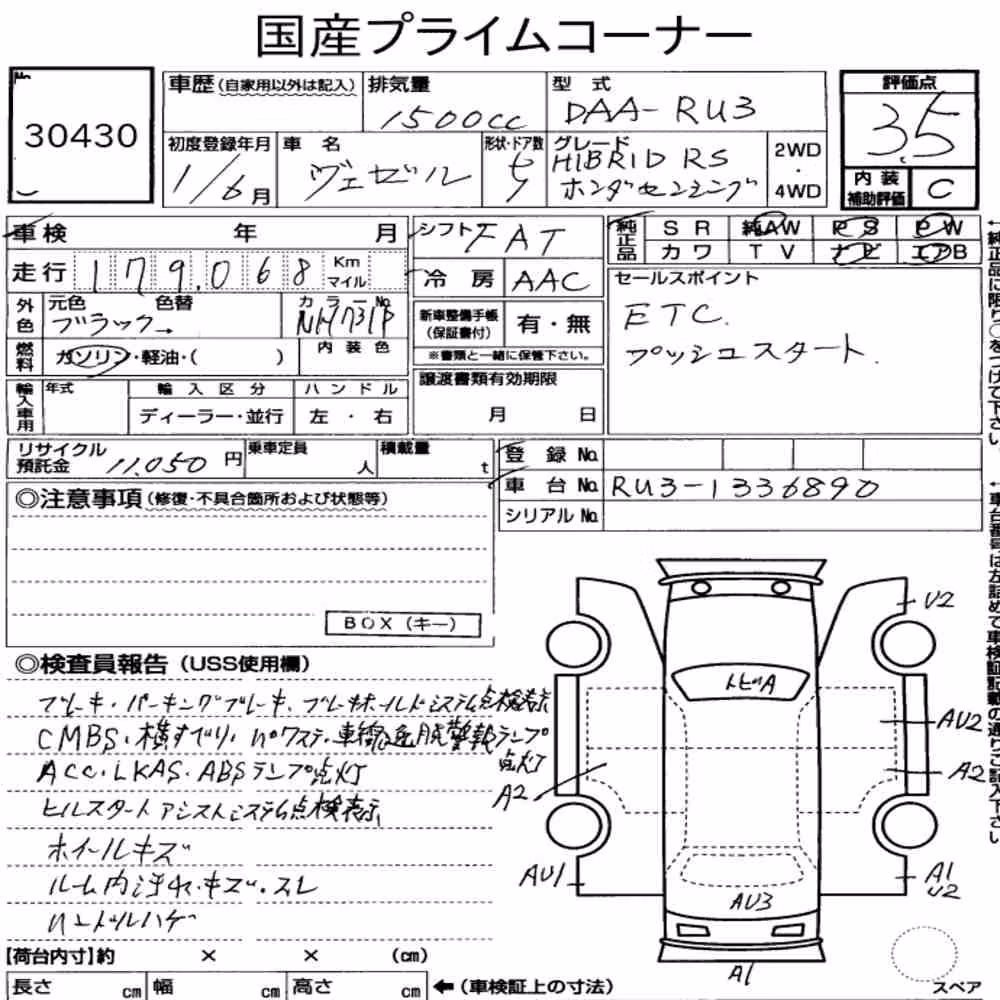 国産プライムコーナー
No
30430
車歴(自家用以外は記入)
排気量
1500cc
型式
DAA-RU3
評価点
3.5
内装
補助評価
C
初度登録年月
1/6月
車名
ヴェゼル
形状・ドア数
5
グレード
HIBRID RS
ホンダセンシング
2WD
・
4WD
車検 年 月
シフト FAT
純正品
SR 純AW PS PW
カワ TV ナビ エアB
走行 179.068 Km
マイル
冷房 AAC
セールスポイント
ETC.
プッシュスタート.
外色
元色 色替
ブラック→
カラーNo.
NH731P
新車整備手帳
(保証書付)
有・無
※書類と一緒に保管下さい。
燃料
ガソリン・軽油・( )
内装色
譲渡書類有効期限
月 日
輸入車用
年式
輸入区分
ハンドル
ディーラー・並行
左・右
リサイクル
預託金
11.050円
乗車定員
人
積載量
t
登録No.
車台No. RU3-1336890
シリアルNo.
◎注意事項(修復・不具合箇所および状態等)
BOX(キー)
◎検査員報告(USS使用欄)
ブレーキ・パーキングブレーキ・ブレーキホールドシステム点検表示
CMBS・横すべり・パワステ・車線逸脱警報ランプ
点灯
ACC・LKAS・ABSランプ点灯
ヒルスタートアシストシステム点検表示
ホイールキズ
ルーム内汚れ・キズ・スレ
ハンドルハゲ
【荷台内寸】約 × × (cm)
長さ cm 幅 cm 高さ cm
←(車検証上の寸法)
U2
トビA
AU2
A2
A2
AU1
A1
U2
AU3
A1
スペア
←純正品に限り○をつけて下さい。
←車台番号は左詰めで車検証記載の通りご記入下さい。